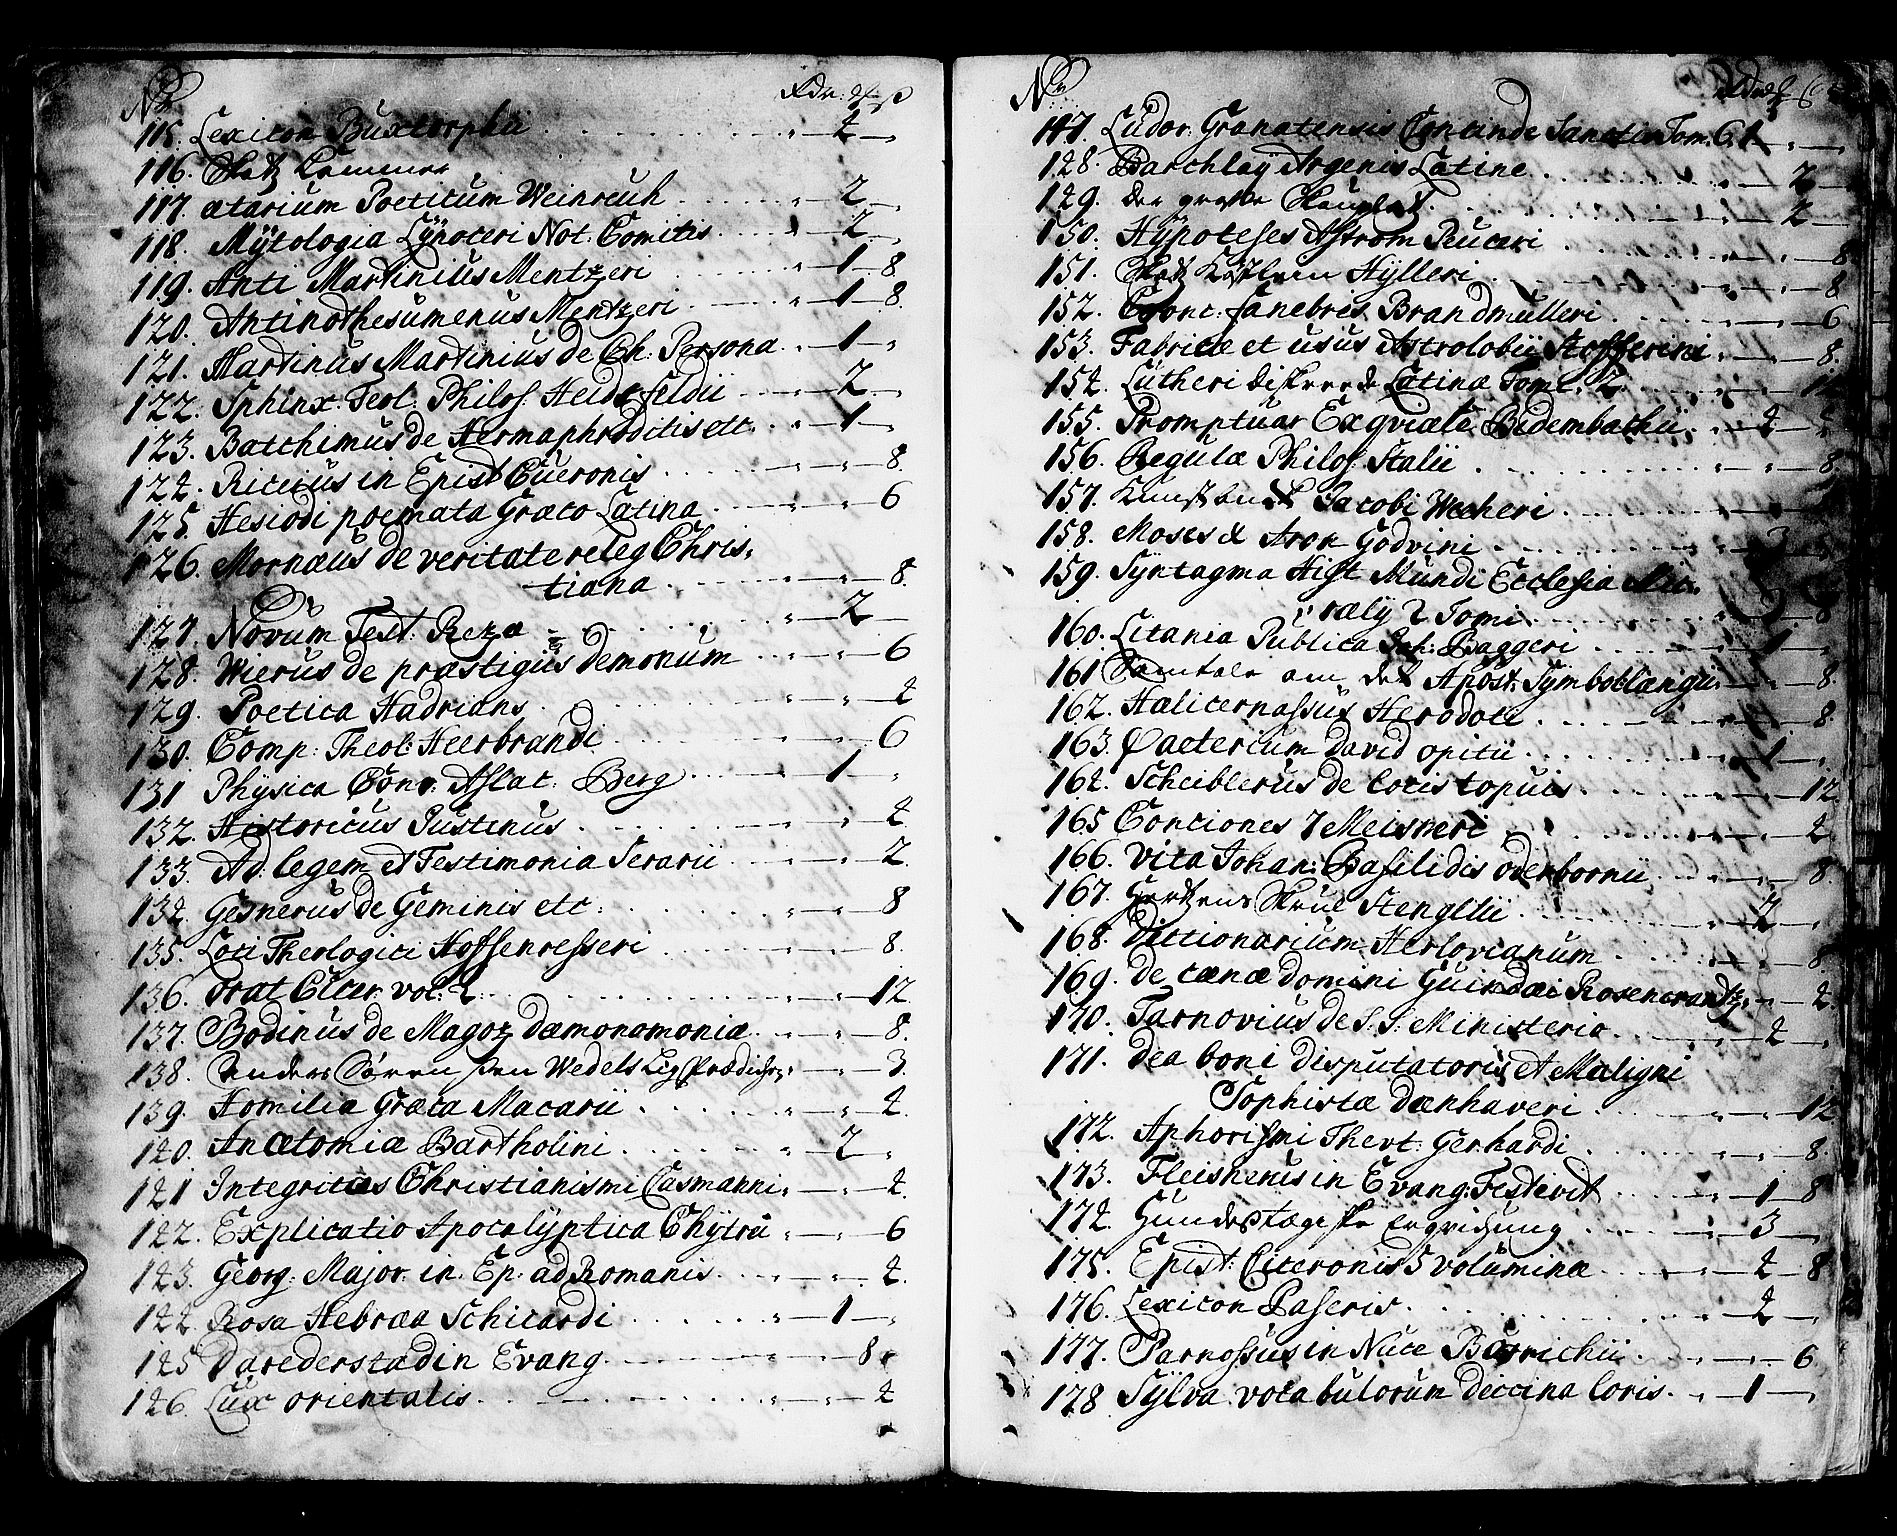 No
115. Lexicon Buxtorphii 4
116. Skatz Kammer
117. ætarium Poeticum Weinreich 2
118. Mÿtologia Lÿnoceri Nat. Comitis 2
119. Anti Martinius Mentzeri 1 8
120. Antinothesumenus Mentzeri 1 8
121. Martinus Martinius de Ch: Persona 1
122. Sphinx Teol. Philos. Heidtfeldii 2
123. Batchimus de Hermaphroditis etc 1
124. Riccius in Epist Ciceronis 8
125. Hesiodi poemata Græco Latina 6
126. Mornæus de veritate releg Chris,
tiana 8
127. Novum Test: Bezæ 2
128. Wierus de præstigiis demonum 6
129. Poetica Hadrians 4
130. Comp: Theol: Heerbrandi 6
131 Physica Berg 1
132. Historicus Justinus 4
133. Ad: legem et Testimonia Serarii 2
134. Gesnerus de Geminis etc: 8
135. Loci Theologici Hoffenrefferi 8
136. Orat Cicer vol: 2 12
137. Bodinus de Magoz dæmonomoniæ 8
138. Anders Søren sen Wedels Lig Prædichn: 3
139. Homilia Græca Macarii 4
140. Anatomia Bartholini 2
141 Integritas Christianismi Casmanni 4
142. Explicatio Apocalÿptica Chÿtræi 6
143. Georg: Major in Ep: ad Romanis 4
144. Rosa Hebræa Schicardi 1
145 Darederstad in Evang 8
146 Lux orientalis 4
No
147. Ludov. Granatensis Conc: de Sanctis Tom: 6. 4
148. Barchlaÿ Argenis Latine 2
149. Der groste 2
150. Hÿpoteses Astrom Peuceri 8
151. Skatz Hÿlleri 8
152. Conc: funebris Brandmulleri 6
153. Fabrica et usus Astrolobii Stofferini 8
154. Lutheri Latina Tom: 2 1
155. Promptuar Exqviæle Bidembachii 4
156. Regulæ Philos Stalii 8
157. Kunst buch Jacobi Wecheri
158. Moses & Aron Godvini 3
159. Sÿntagma Hist Mundi Ecclesia Mic,
rælÿ 2 Tomi 8
160. Litania Publica Joh: Baggeri 1
161 Samtale om det Apost: Sÿmbol Langii 8
162. Halicernassus Herodoti 8
163. Pacterium David Opitii 1
164. Scheiblerus de locis topicis 12
165 Conciones 7 Meisneri 4
166. Vita Johan: Basilidis Oderbornii 8
167. Hertzens Skrüe Stenglii 2
168. Dictionarium Herlovianum 8
169. de cænæ domini Guindæi Rosencrantz 4
170. Tarnovius de S: S: Ministerio 4
171. Dea boni disputatoris et Maligni
Sophistæ dænhaveri 12
172. Aphorismi Thevt: Gerhardi 8
173. Fleisherus in Evang: Festevit 1 8
174. Gundestægiske Ergvidsung 3
175. Epist: Ciceronis 5 voluminæ 4 8
176. Lexicon Paseris 4
177. Parnossus in Nuce Borrichii 6
178 Sÿlva vocabulorum Deccina loris 1